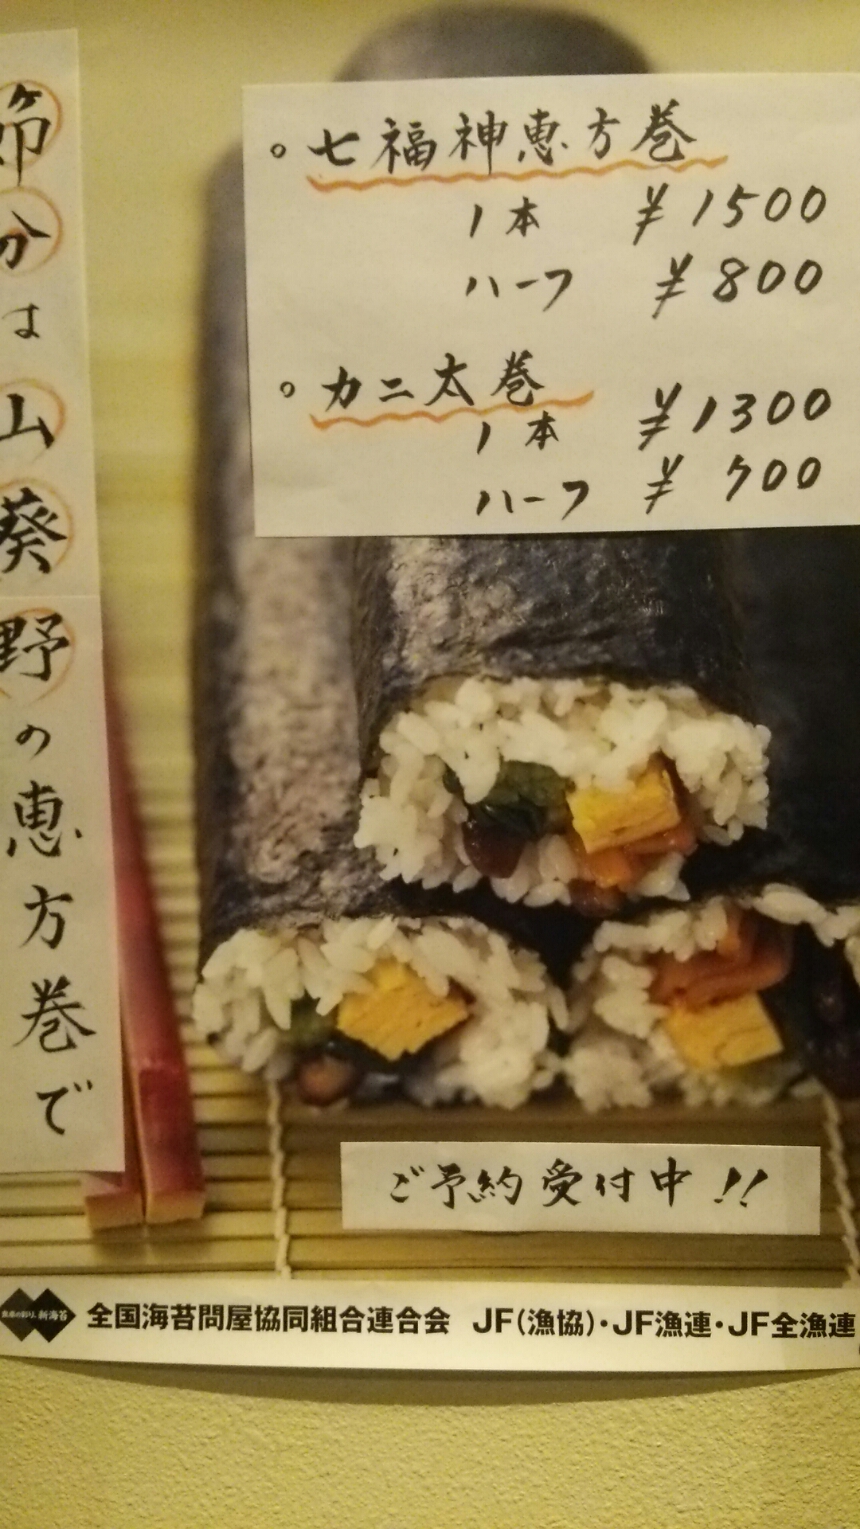 節分は山葵野の恵方巻で
。七福神恵方巻
1本 ¥1500
ハーフ ¥800
。カニ太巻
1本 ¥1300
ハーフ ¥700
ご予約受付中!!
全国海苔問屋協同組合連合会 JF(漁協)・JF漁連・JF全漁連